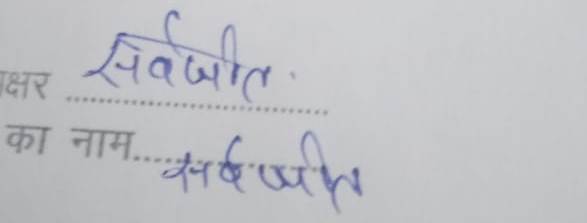 क्षर सर्वजीत.
का नाम सर्वजीत